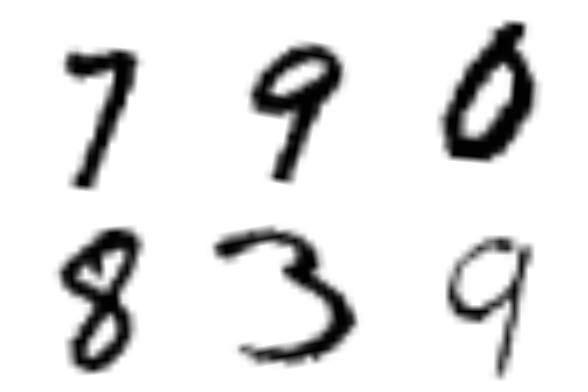 7 9 0
8 3 9